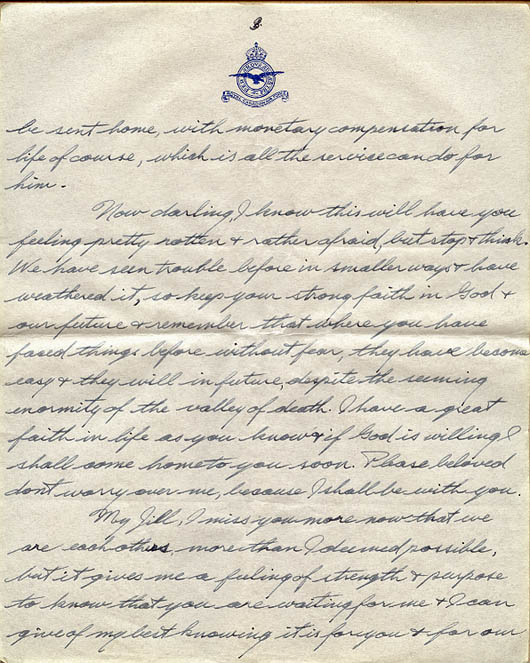 be sent home, with monetary compensation for
life of course, which is all the service can do for
him.
Now darling, I know this will have you
feeling pretty rotten & rather afraid, but stop & think.
We have seen trouble before in smaller ways & have
weathered it, so keep your strong faith in God &
our future & remember that where you have
faced things before without fear, they have become
easy & they will in future, despite the seeming
enormity of the valley of death. I have a great
faith in life as you know & if God is willing I
shall come home to you soon. Please beloved
dont worry over me, because I shall be with you.
My Jill, I miss you more now that we
are each others, more than I deemed possible,
but it gives me a feeling of strength & purpose
to know that you are waiting for me & I can
give of my best knowing it is for you & for our